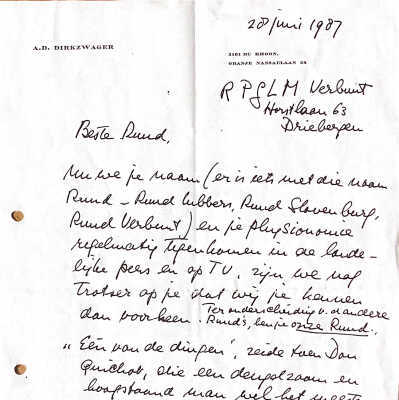 28 juni 1987
A.D. DIRKZWAGER
3161 HC RHOON,
ORANJE NASSAULAAN 24
R P G L M Verbunt
Horstlaan 63
Driebergen
Beste Ruud,
Nu we je naam (er is iets met die naam
Ruud – Ruud Lubbers, Ruud Slavenburg,
Ruud Verbunt) en je physionomie
regelmatig tegenkomen in de lande-
lijke pers en op TV, zijn we nog
trotser op je dat wij je kennen
dan voorheen. Ter onderscheiding v. d andere
Ruud's, ben je onze Ruud.
„Eén van de dingen', zeide toen Don
Quichot, die een deugdzaam en
hoogstaand man wel het meeste